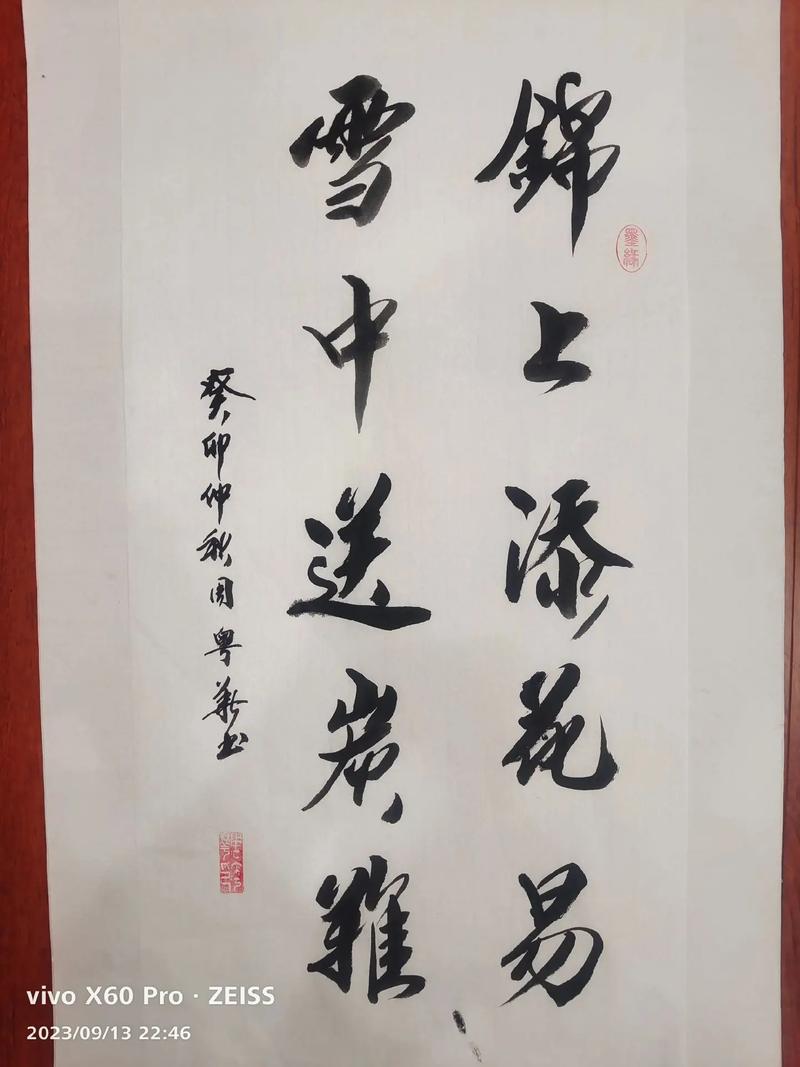 錦上添花易
雪中送炭難
癸卯仲秋周粤華书
墨緣
vivo X60 Pro · ZEISS
2023/09/13 22:46